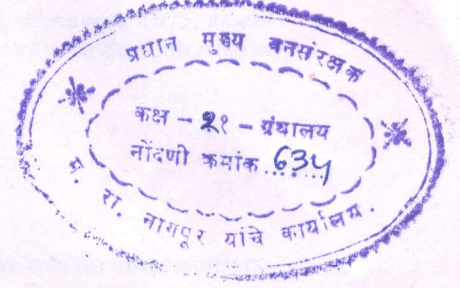 प्रधान मुख्य वनसंरक्षक
कक्ष - २१ - ग्रंथालय
नोंदणी क्रमांक ...... 634
म. रा. नागपूर यांचे कार्यालय.